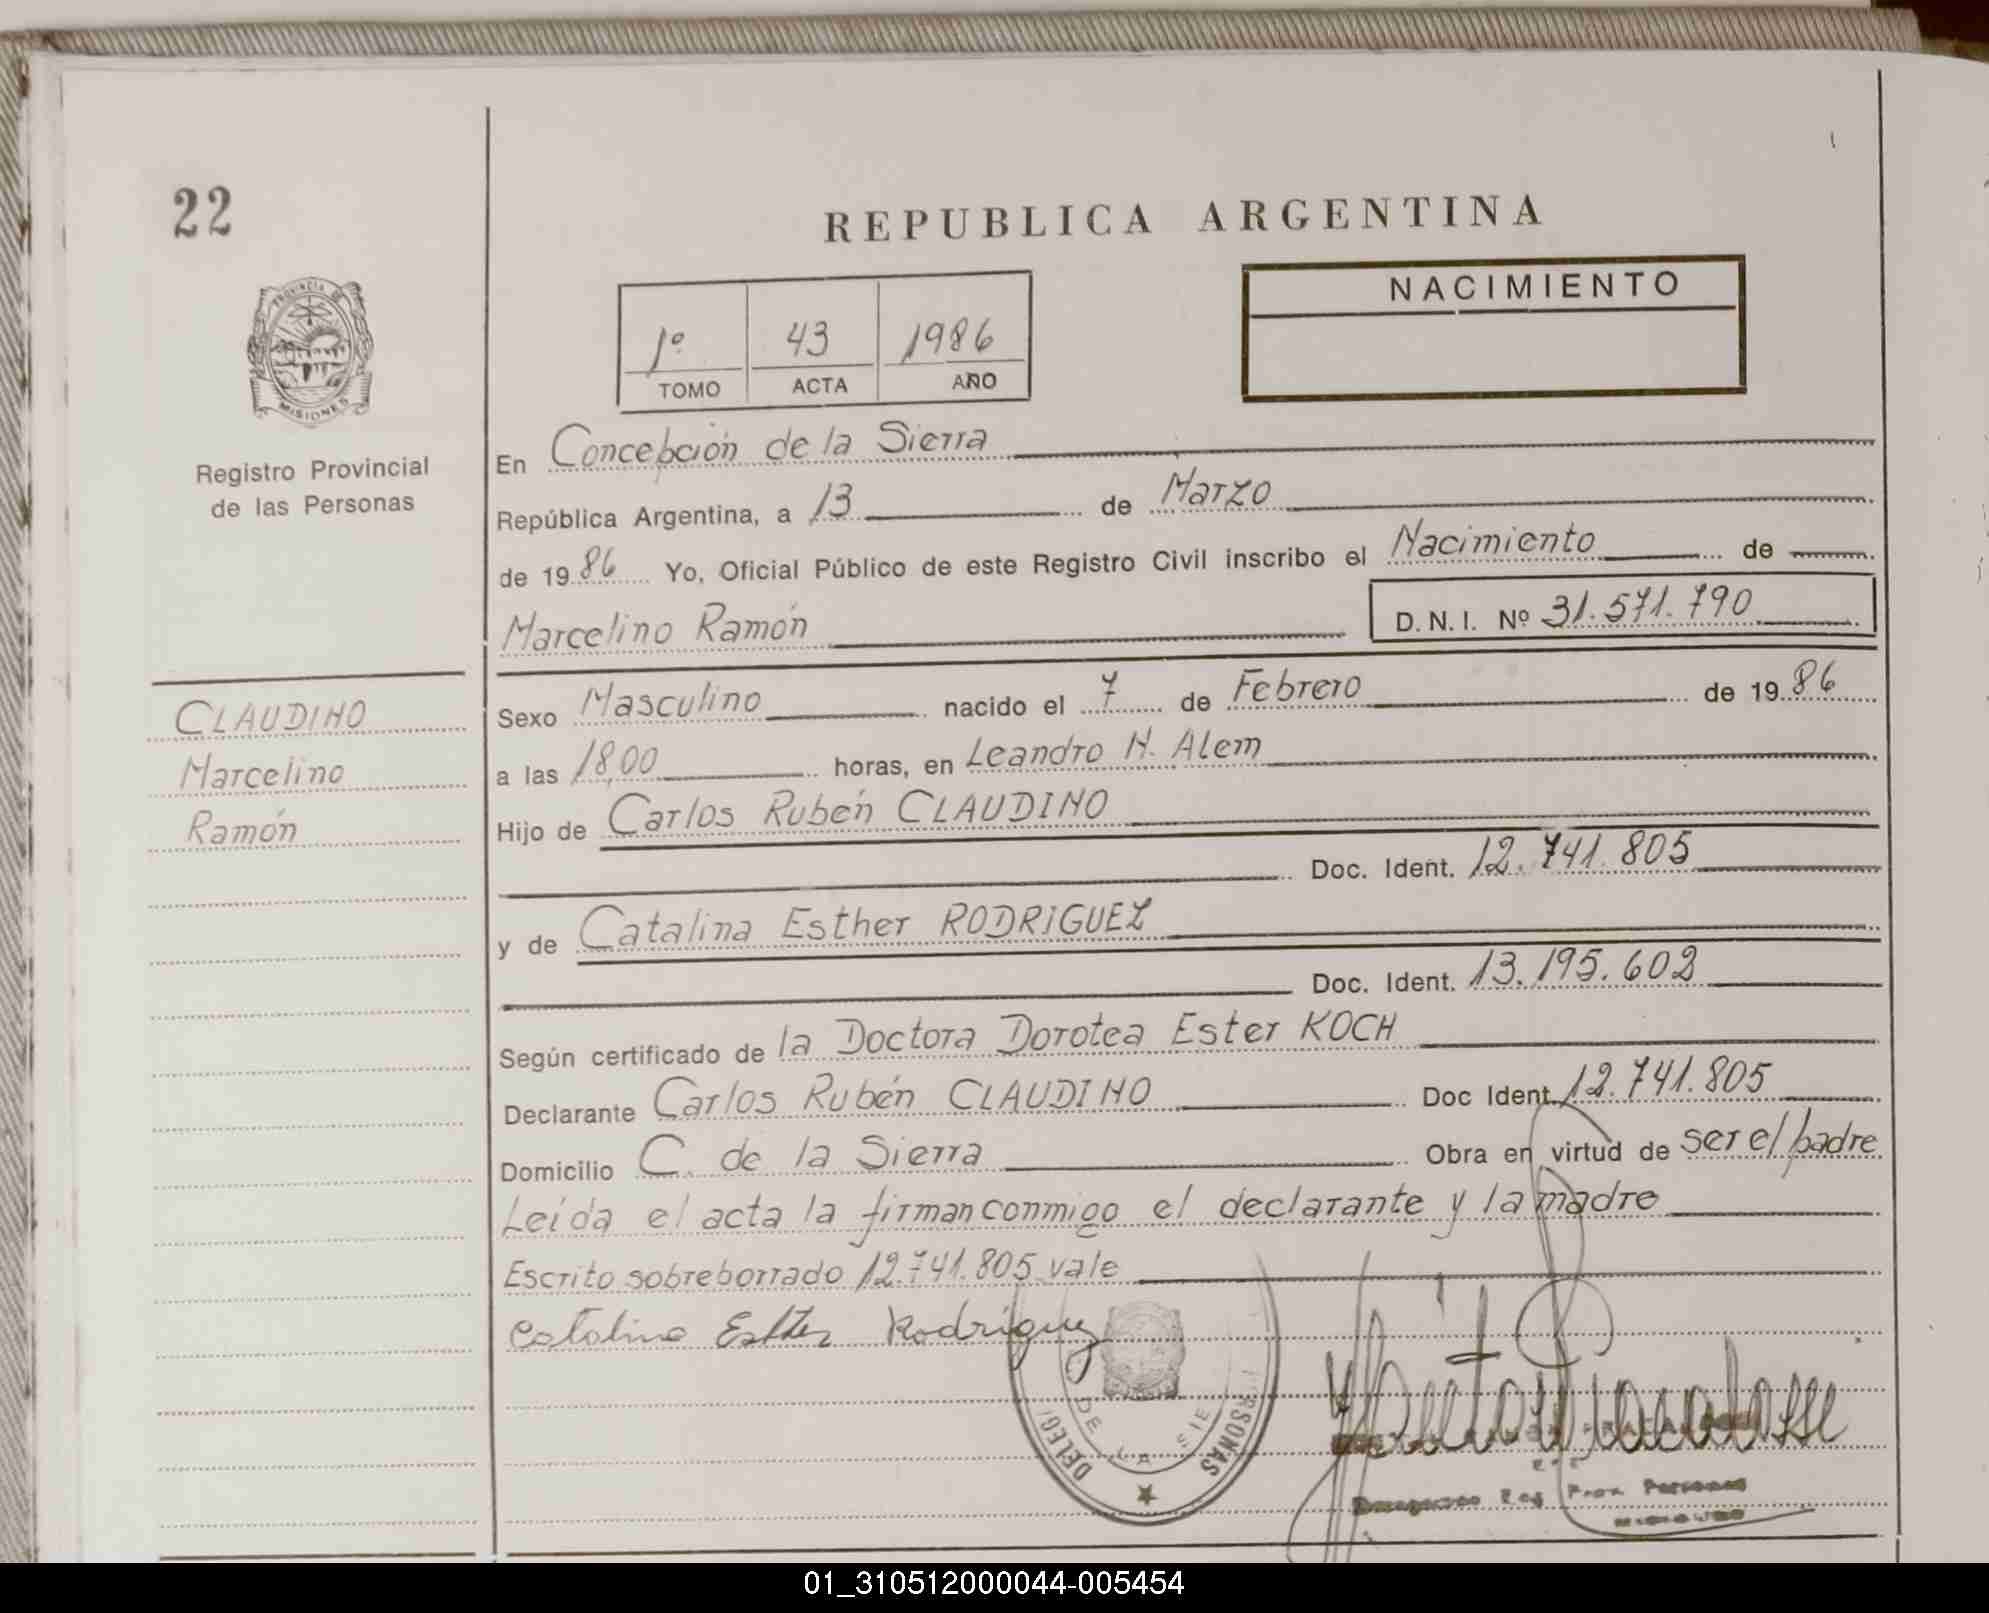 22
REPUBLICA ARGENTINA
PROVINCIA DE
MISIONES
NACIMIENTO
1º 43 1986
TOMO ACTA AÑO
Registro Provincial
de las Personas
En Concepción de la Sierra
República Argentina, a 13 de Marzo
de 1986 Yo, Oficial Público de este Registro Civil inscribo el Nacimiento de
Marcelino Ramón D.N.I. Nº 31.571.790
CLAUDINO
Marcelino
Ramón
Sexo Masculino nacido el 7 de Febrero de 1986
a las 18,00 horas, en Leandro N. Alem
Hijo de Carlos Rubén CLAUDINO
Doc. Ident. 12.741.805
y de Catalina Esther RODRIGUEZ
Doc. Ident. 13.195.602
Según certificado de la Doctora Dorotea Ester KOCH
Declarante Carlos Rubén CLAUDINO Doc Ident. 12.741.805
Domicilio C. de la Sierra Obra en virtud de ser el padre
Leída el acta la firman conmigo el declarante y la madre
Escrito sobreborrado 12.741.805 vale
Catalina Esther Rodriguez
DE LA SIE
DELEG
RSONAS
Reg Prov. Personas
01_310512000044-005454